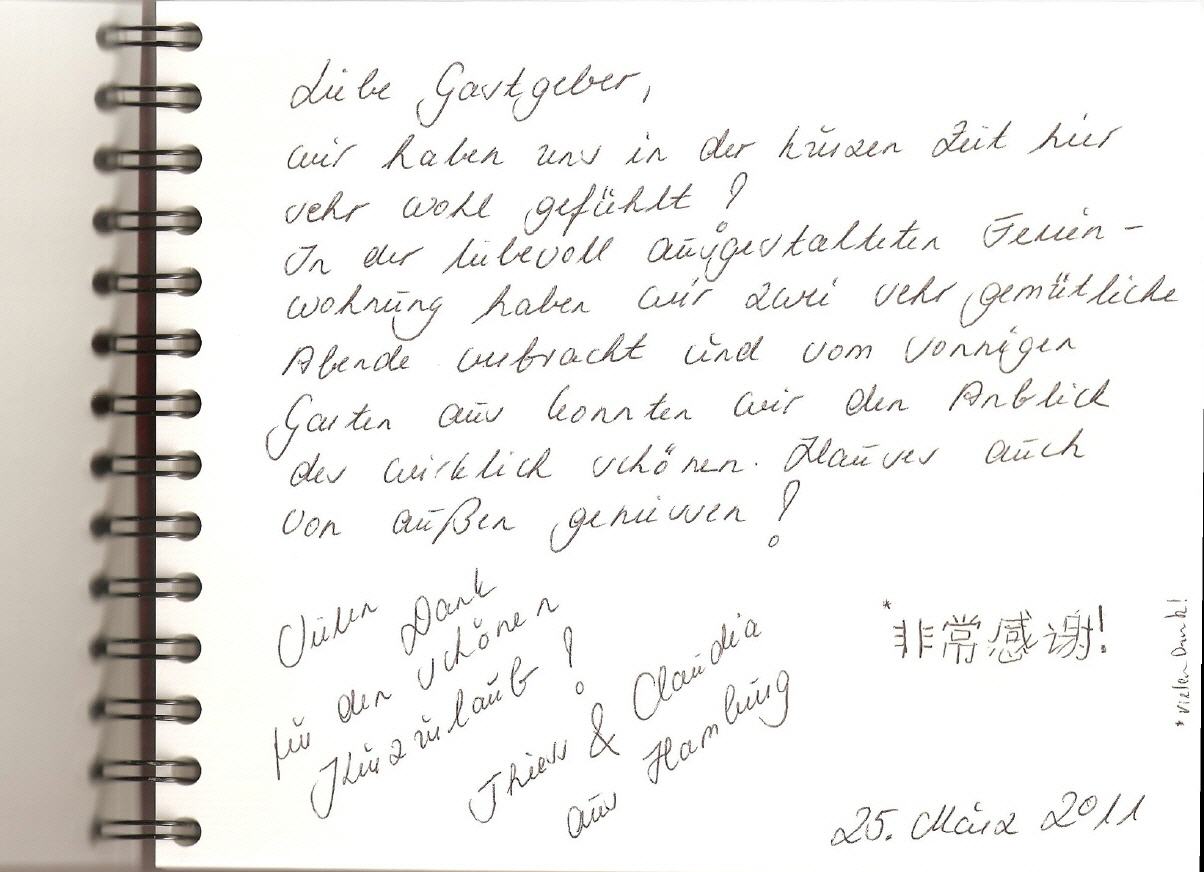 Liebe Gastgeber,
wir haben uns in der kurzen Zeit hier
sehr wohl gefühlt!
In der liebevoll ausgestalteten Ferien-
wohnung haben wir zwei sehr gemütliche
Abende verbracht und vom sonnigen
Garten aus konnten wir den Anblick
des wirklich schönen Hauses auch
von außen geniessen!
Vielen Dank
für den schönen
Kurzurlaub!
Thiess & Claudia
aus Hamburg
*非常感谢!
*vielen Dank!
25. März 2011